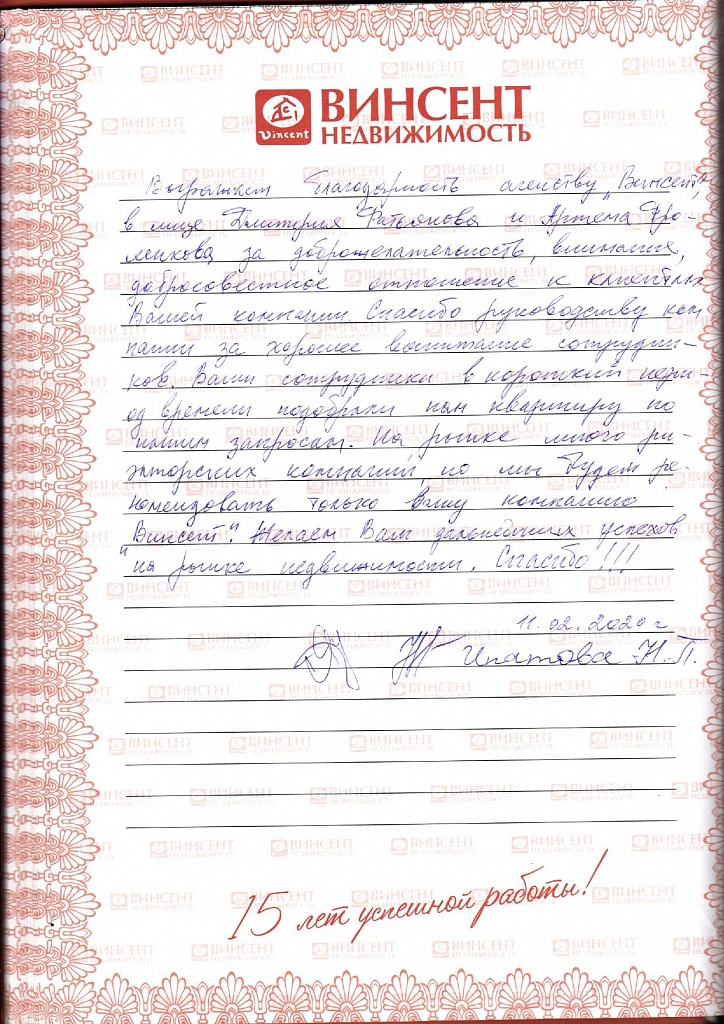 ВИНСЕНТ
НЕДВИЖИМОСТЬ
Vincent
Выражаем благодарность агенству „Винсент"
в лице Дмитрия и Артема Фро-
ликова за доброжелательность, внимание,
добросовестное отношение к клиентам
Вашей компании. Спасибо руководству ком
пании за хорошее воспитание сотрудни-
ков. Ваши сотрудники в короткий пери-
од времени подобрали нам квартиру по
нашим запросам. На рынке много ри-
элторских компаний, но мы будем ре-
комендовать только Вашу компанию
"Винсент". Желаем Вам дальнейших успехов
на рынке недвижимости. Спасибо!!!
11.02.2020 г
Ипатова Н.П.
15 лет успешной работы!